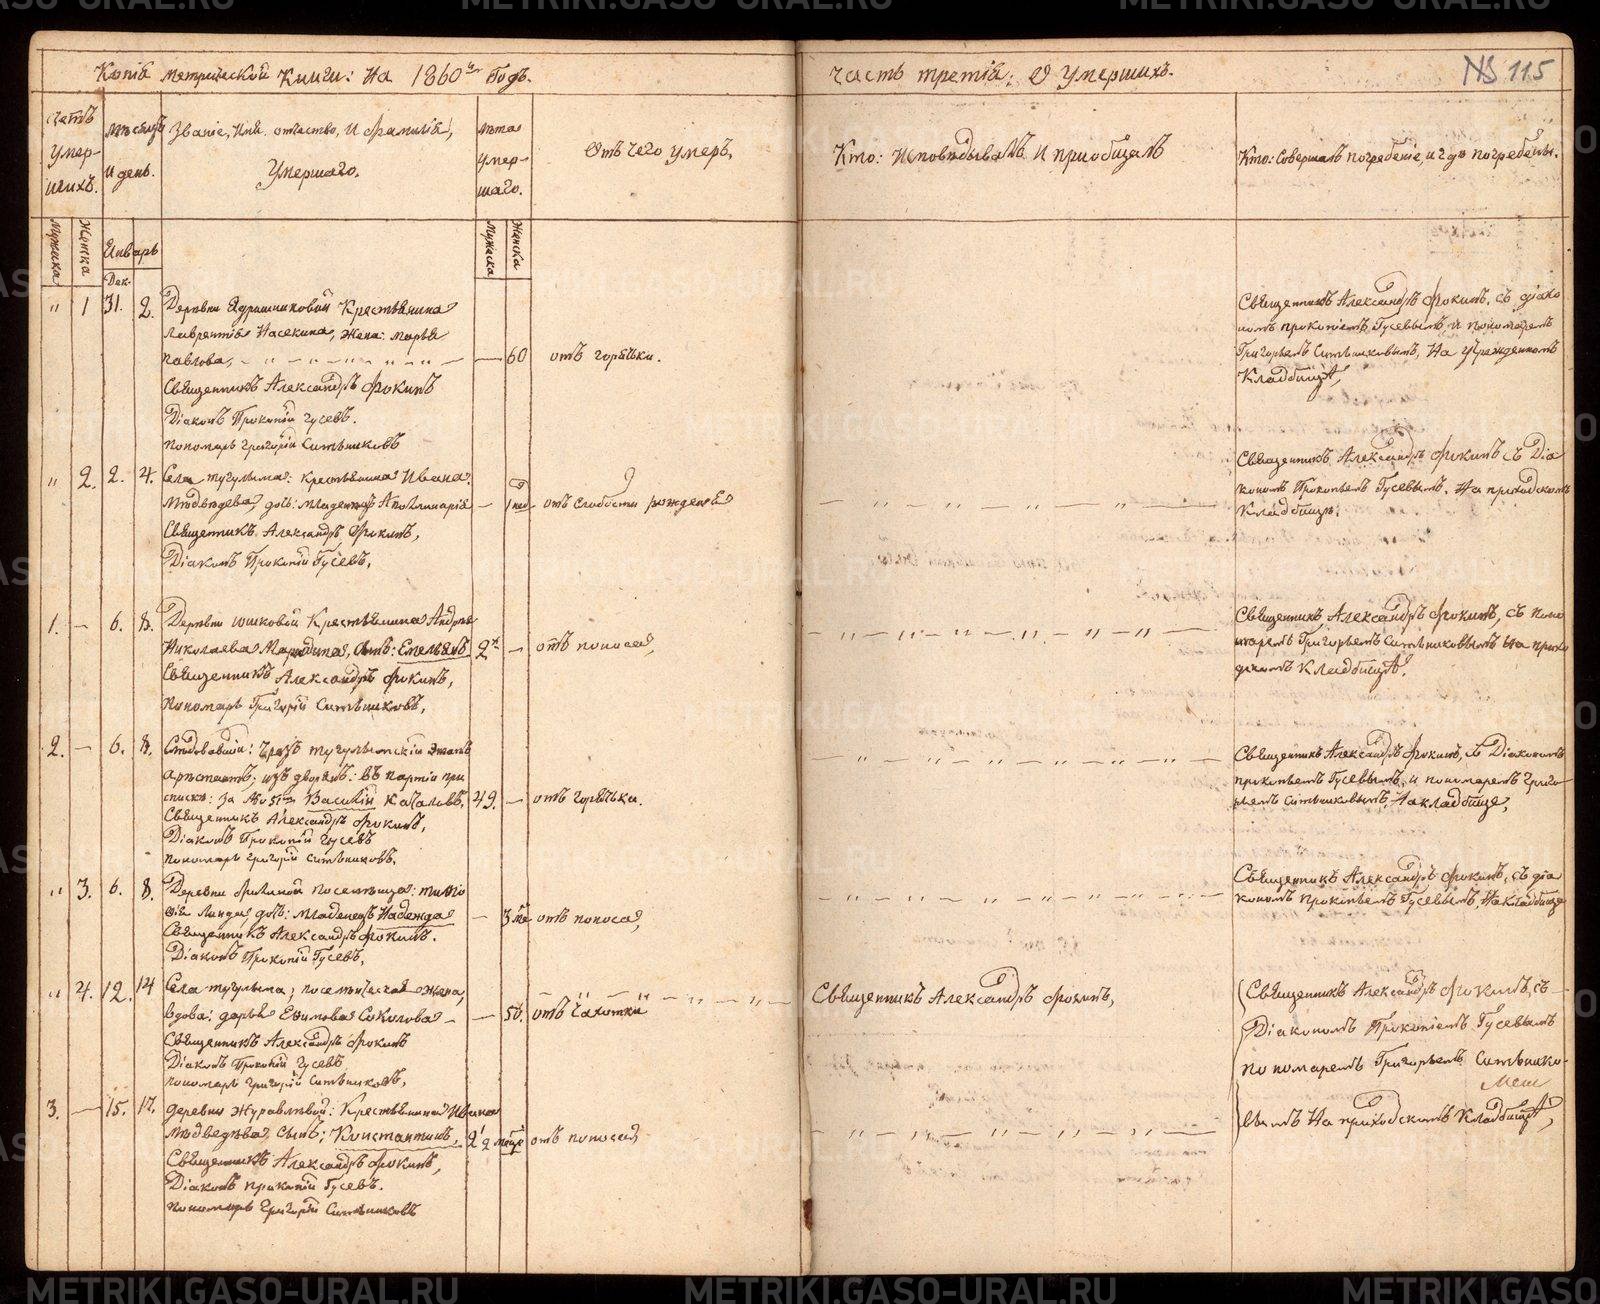 Копія метрической Книги: На 1860й Годъ.
Часть третія: О Умершихъ.
115
счетъ умер-шихъ.
Мѣсяцъ и день.
Званіе, Имя, отчество, и фамилія,
Умершаго.
лѣта умер-шаго.
Отъ чего умеръ.
Кто: Исповѣдывалъ и приобщалъ
Кто: Совершалъ погребеніе, и гдѣ погребены.
Мужска
Женска
Январь
Дек.
Мужска
Женска
" 1 31. 2. Деревни Ядрышниковой Крестьянина
Лаврентія Насекина, Жена: Марья
Павлова, — 60 отъ горячки.
Священникъ Александръ Фокинъ
Діаконъ Прокопій Гусевъ.
пономарь Григорій Ситниковъ
Священникъ Александръ Фокинъ, съ діако
номъ прокопіемъ Гусевымъ, и пономаремъ
Григорьемъ Ситниковымъ, На Учрежденномъ
Кладбищѣ,
" 2. 2. 4. Села тугулыма: крестьянина Ивана
Мѣдведева дочь: младенецъ Аполинарія — 1 нед. отъ слабости рожденія
Священникъ Александръ Фокинъ,
Діаконъ Прокопій Гусевъ,
Священникъ Александръ Фокинъ съ Діа
кономъ Прокопьемъ Гусевымъ. На приходскомъ
Кладбищѣ.
1. — 6. 8. Деревни юшковой Крестьянина Андрея
Николаева сынъ: Емельянъ 2х — отъ поноса,
Священникъ Александръ Фокинъ,
Пономарь Григорій Ситниковъ,
Священникъ Александръ Фокинъ, съ поно
маремъ Григорьемъ Ситниковымъ На прихо
дскомъ Кладбищѣ.
2. — 6. 8. Слѣдовавшій: Чрезъ тугулымскій этапъ
арестантъ; изъ дворянъ: въ партіи при
списке: за № 51 Василій Каталовъ, 49. — отъ горячки.
Священникъ Александръ Фокинъ,
Діаконъ Прокопій Гусевъ
пономарь григорій ситниковъ.
Священникъ Александръ Фокинъ, съ Діакономъ
прокопьемъ Гусевымъ, и пономаремъ Григо
рьемъ ситниковымъ, На кладбище,
" 3. 6. 8. Деревни филиной поселенца:
дочь: младенецъ Надежда — 3 ме отъ поноса,
Священникъ Александръ Фокинъ.
Діаконъ Прокопій Гусевъ,
Священникъ Александръ Фокинъ, съ діа
кономъ прокопьемъ Гусевымъ, На кладбище
" 4. 12. 14 Села тугулыма; поселенческая жена,
вдова: дарья Ефимова Соколова — 50. отъ Чахотки
Священникъ Александръ Фокинъ
Діаконъ Прокопій Гусевъ
пономарь григорій Ситниковъ,
Священникъ Александръ Фокинъ,
Священникъ Александръ Фокинъ, съ
Діакономъ Прокопіемъ Гусевымъ
пономаремъ Григорьемъ Ситнико-
вымъ На приходскомъ Кладбищѣ,
3. — 15. 17. деревни Журавлевой: Крестьянина Ивана
Мѣдведева, сынъ: Константинъ, 2 отъ поноса,
Священникъ Александръ Фокинъ,
Діаконъ прокопій Гусевъ.
пономарь Григорій Ситниковъ
METRIKI.GASO-URAL.RU